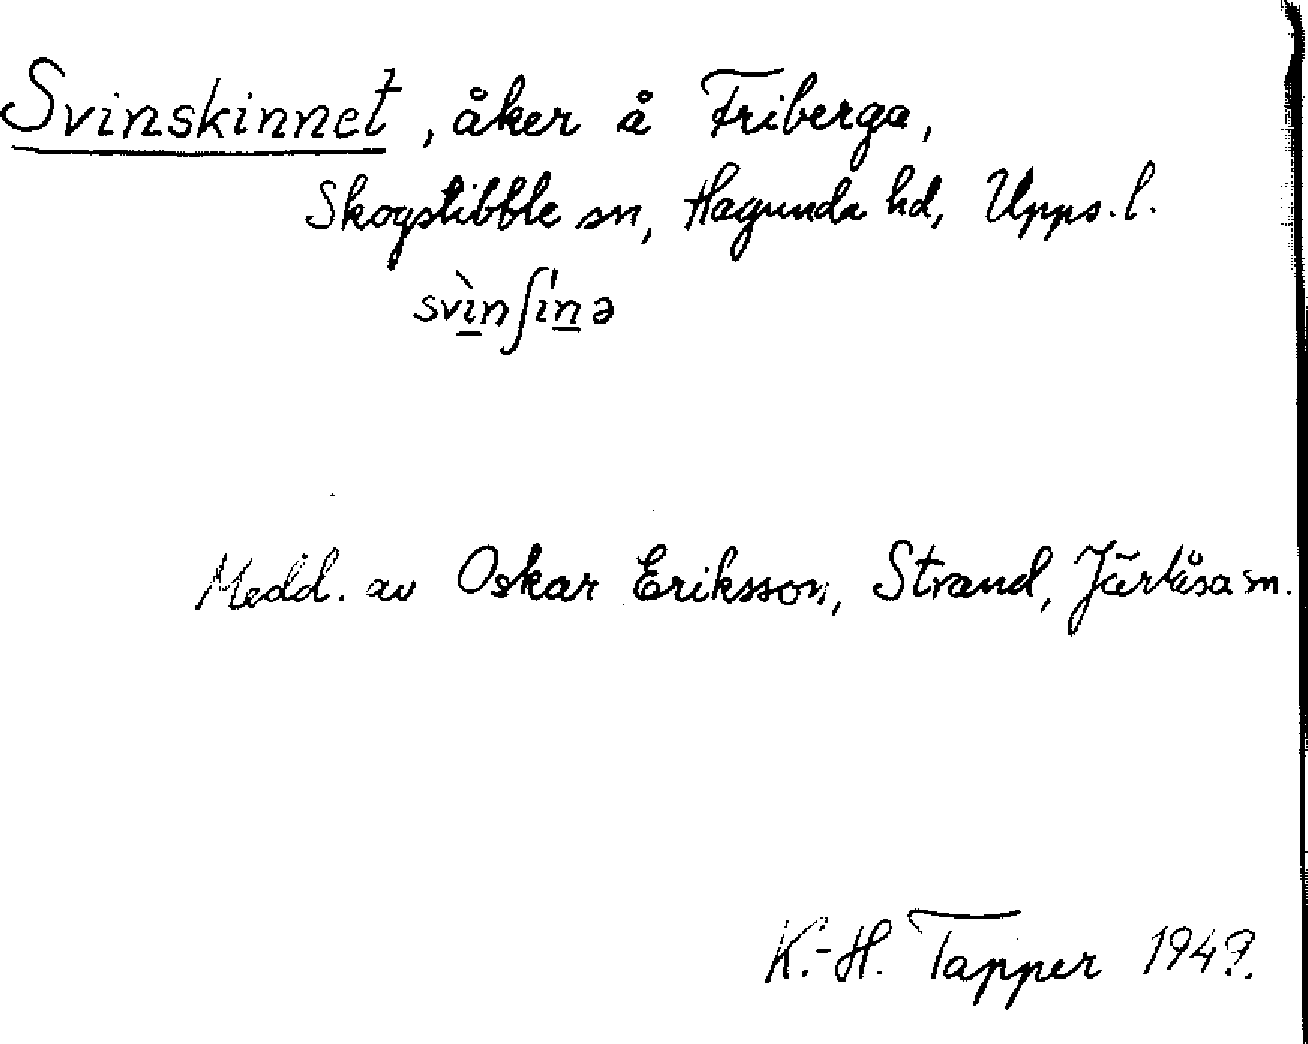 Svinskinnet, åker å Friberga,
Skogstibble sn, Hagunda hd, Upps. l.
svìnʃinə
Medd. av Oskar Eriksson, Strand, Järlåsa sn.
K.-H. Tapper 1949.